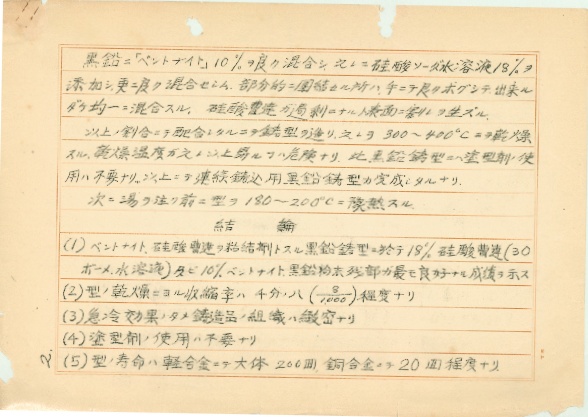 黒鉛ニ「ベントナイト」10%ヲ良ク混合シ、之レニ硅酸ソーダ水溶液18%ヲ
添加シ更ニ良ク混合セシム. 部分的ニ固結セル所ハ手ニテ良クホグシテ出来ル
ダケ均一ニ混合スル. 硅酸曹達ガ過剰ニナルト表面ニ 生ズル.
以上ノ割合ニテ配合シタルニテ鋳型ヲ造リ、之レヲ300〜400°Cニテ乾燥
スル. 乾燥温度ガ之レ以上昇ルハ危険ナリ. 此黒鉛鋳型ニハ塗型剤ノ使
用ハ不要ナリ. 以上ニテ連続鋳込用黒鉛鋳型ガ完成シタルナリ.
次ニ湯ヲ注グ前ニ型ヲ180〜200°Cニ 熱スル.
結 論
(1) ベントナイト、硅酸曹達ヲ粘結剤トスル黒鉛鋳型ニ於テ18%硅酸曹達(30
ボーメ水溶液)及ビ10%ベントナイト、黒鉛粉末残部ガ最モ良好ナル成績ヲ示ス
(2) 型ノ乾燥ニヨル収縮率ハ 千分ノ八(8/1000)程度ナリ
(3) 急冷効果ノタメ鋳造品ノ組織ハ緻密ナリ
(4) 塗型剤ノ使用ハ不要ナリ
(5) 型ノ寿命ハ軽合金ニテ大体200回、銅合金ニテ20回程度ナリ
2.